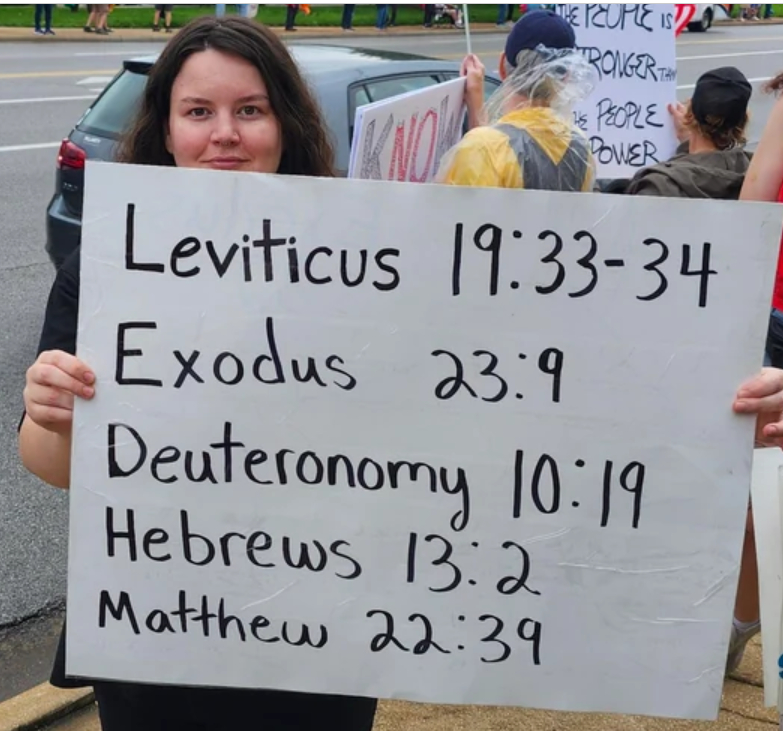 Leviticus 19:33-34
Exodus 23:9
Deuteronomy 10:19
Hebrews 13:2
Matthew 22:39
THE PEOPLE IS
STRONGER THAN
THE PEOPLE
POWER